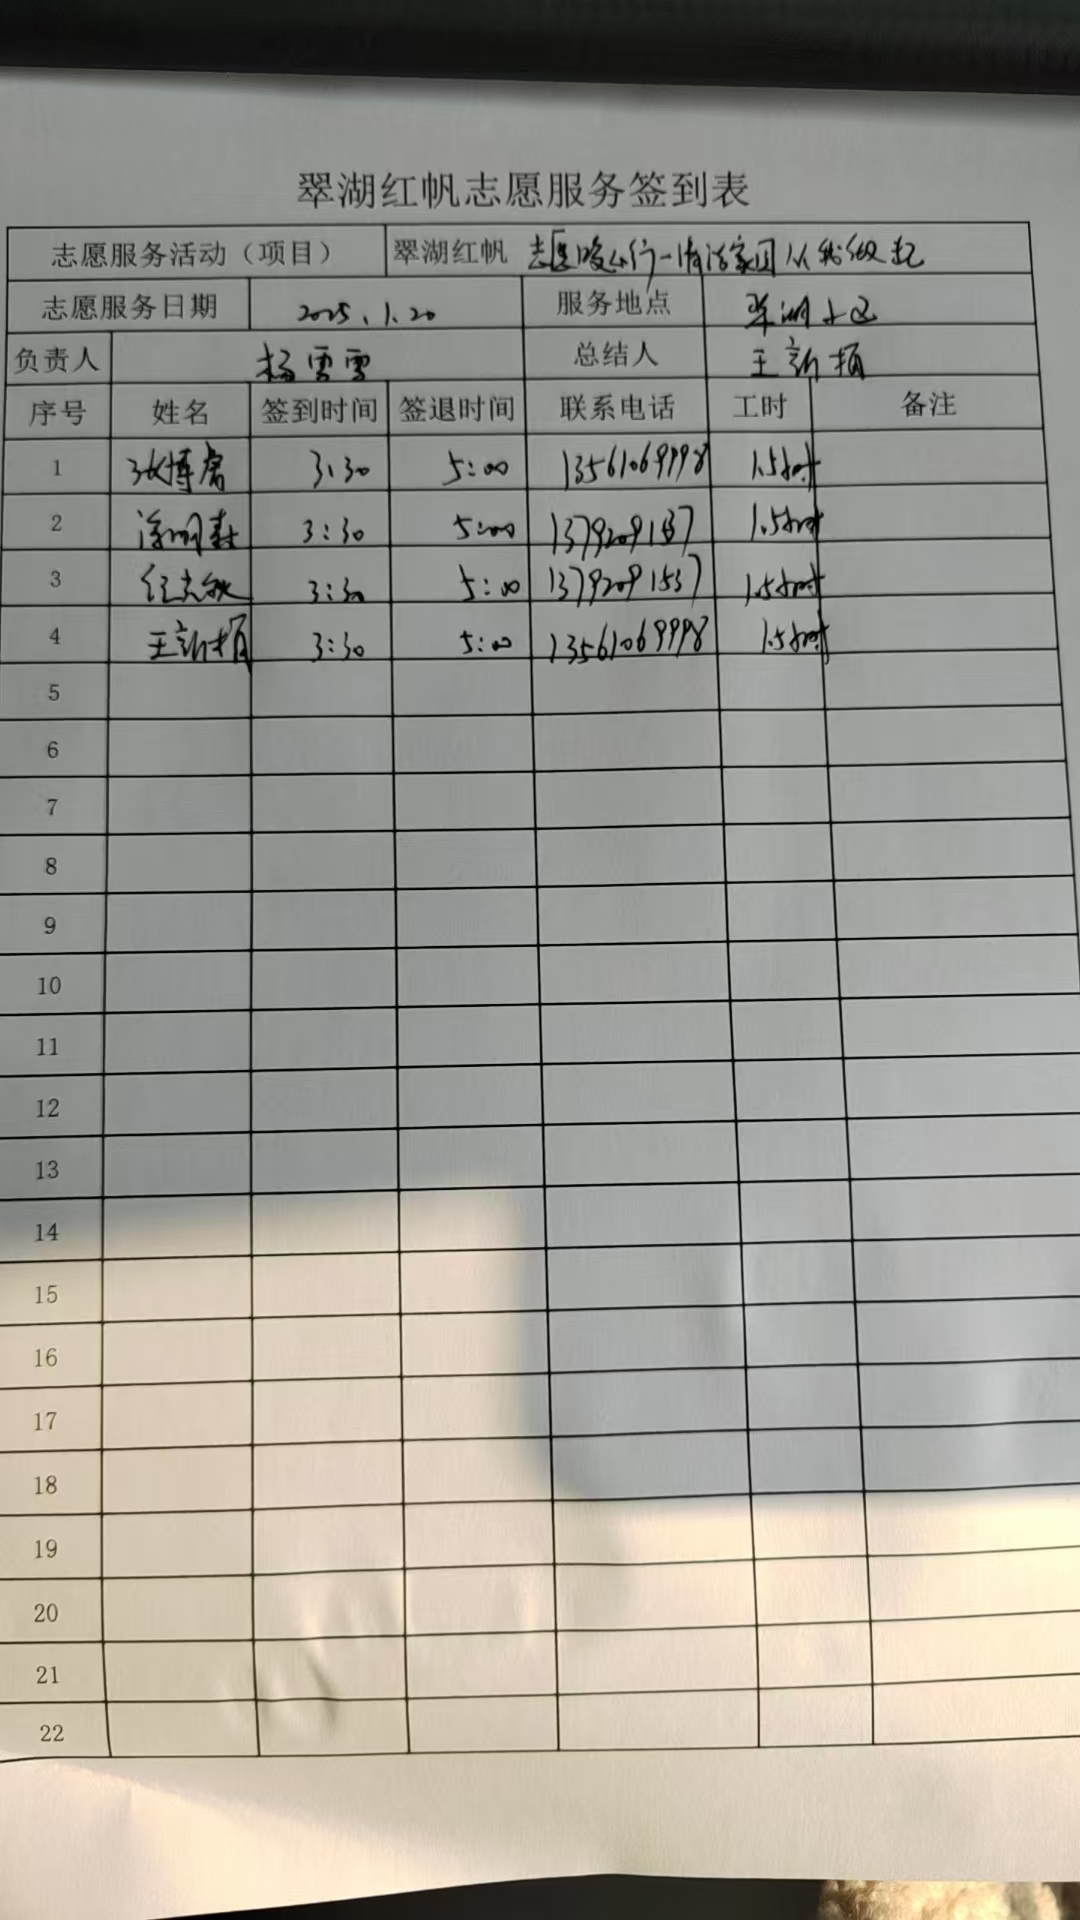 翠湖红帆志愿服务签到表
志愿服务活动（项目） 翠湖红帆 志愿暖心行一清洁家园从我做起
志愿服务日期 2025.1.20 服务地点 翠湖小区
负责人 杨雪雪 总结人 王新梅
序号 姓名 签到时间 签退时间 联系电话 工时 备注
1 张博 3:30 5:00 13561069998 1.5小时
2 3:30 5:00 1.5小时
3 任志敏 3:30 5:00 13792091537 1.5小时
4 王新梅 3:30 5:00 13561069998 1.5小时
5
6
7
8
9
10
11
12
13
14
15
16
17
18
19
20
21
22